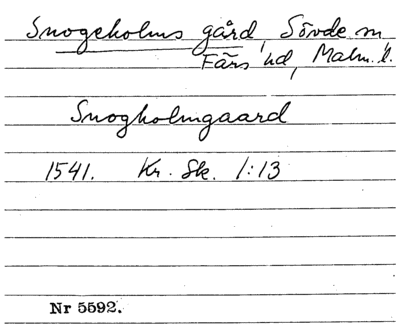 Snogeholms gård, Sövde sn
Färs hd, Malm. l.
Snogholmgaard
1541. Kr. Sk. 1:13
Nr 5592.